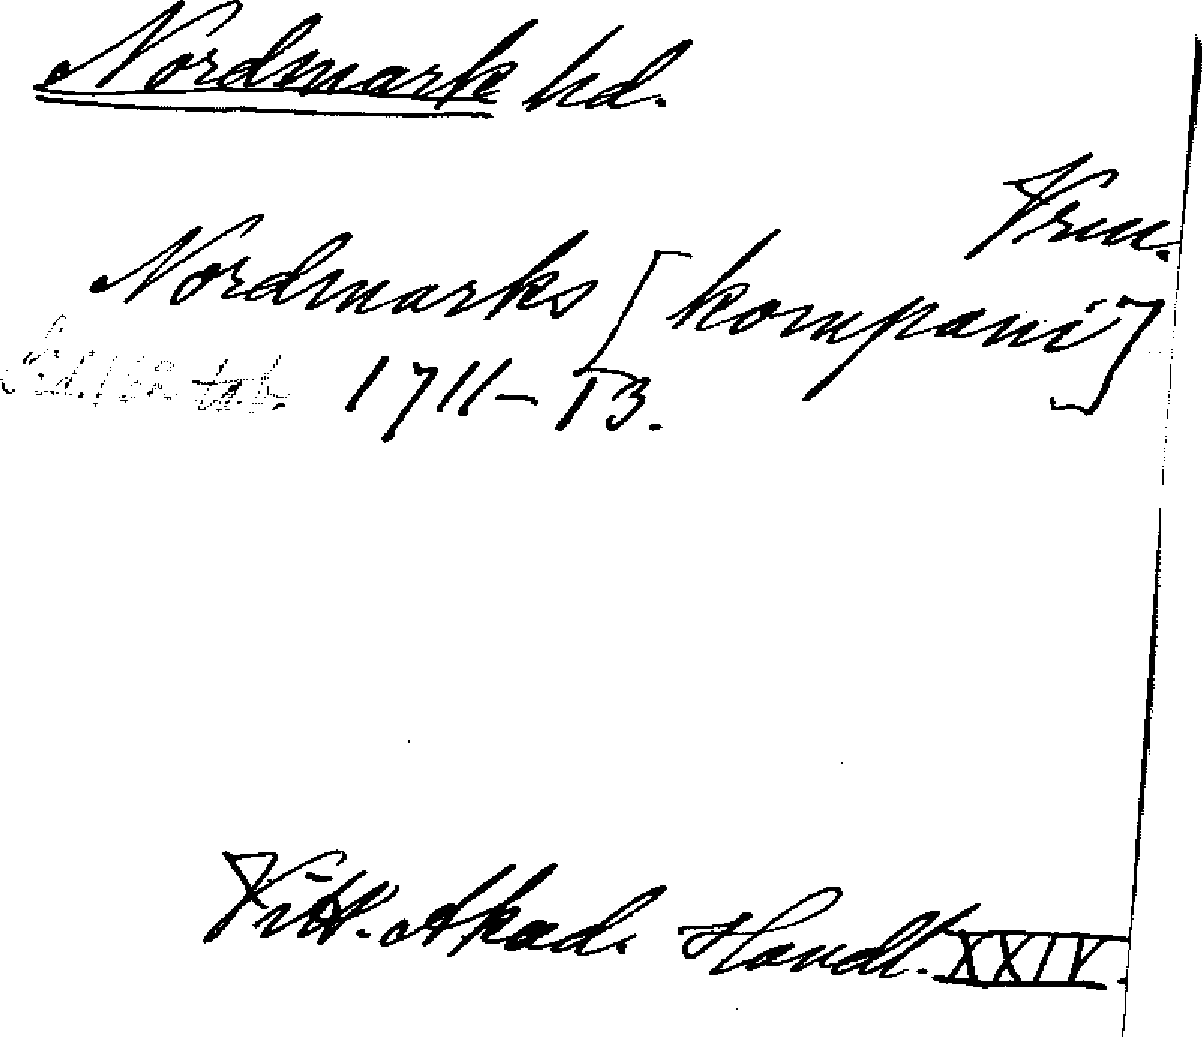 Nordmark hd.
Vrm.
Nordmarks [kompani]
1711-13.
Vitt. Akad. Handl. XXIV.